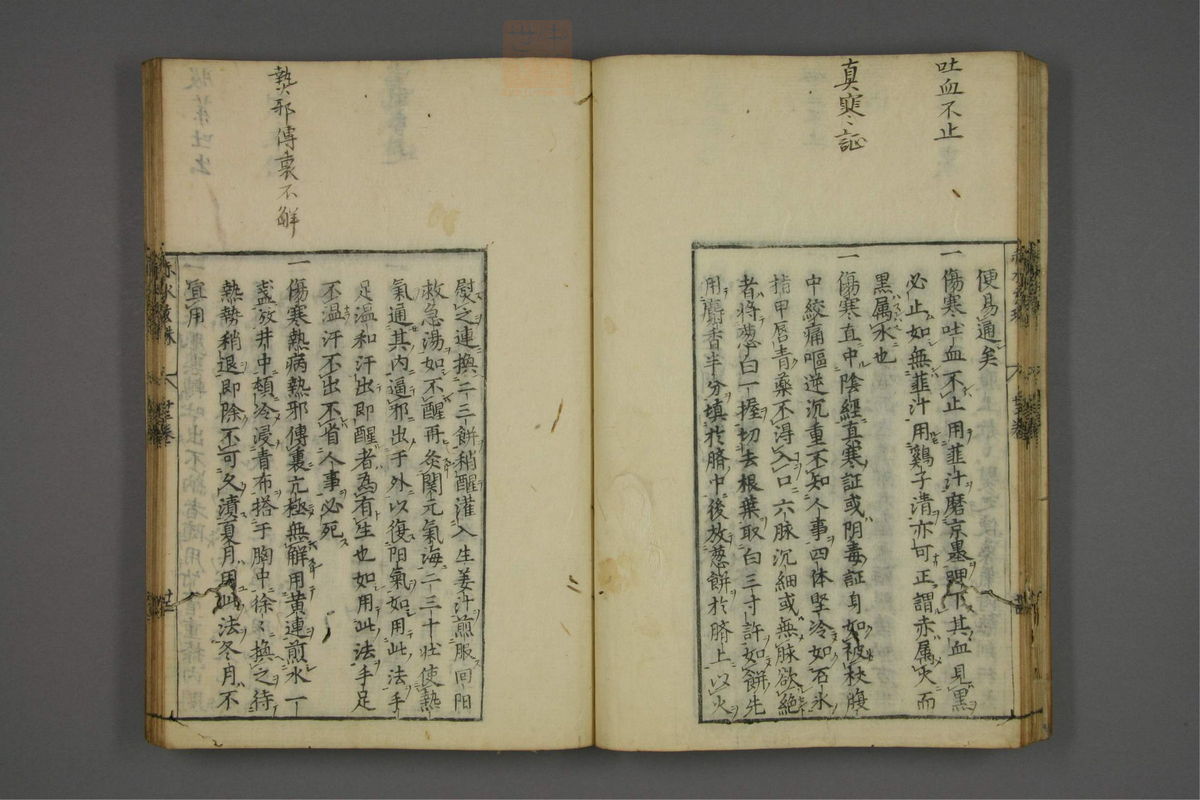 吐血不止
真寒証
便易通矣
一傷寒吐血不止用韮汁磨京墨呷下其血見黒
必止如無韮汁用鷄子清亦可正謂赤属火而
黒属水也
一傷寒直中陰經真寒証或阴毒証身如被杖腹
中絞痛嘔逆沉重不知人事四体堅冷如石氷
指甲唇青藥不得入口六脉沉細或無脉欲絶
者將葱白一握切去根葉取白三寸許如餅先
用麝香半分填於臍中後放葱餅於臍上以火
熱邪傳裏不解
熨之連換二三餅稍醒灌入生姜汁煎服回阳
救急湯如不醒再灸関元氣海二三十壮使熱
氣通其内逼邪出于外以復阳氣如用此法手
足温和汗出即醒者為有生也如用此法手足
不温汗不出不省人事必死
一傷寒熱病熱邪傳裏亢極無解用黄連煎水一
盞放井中頓冷浸青布搭于胸中徐々換之待
熱勢稍退即除不可久漬夏月用此法冬月不
宜用